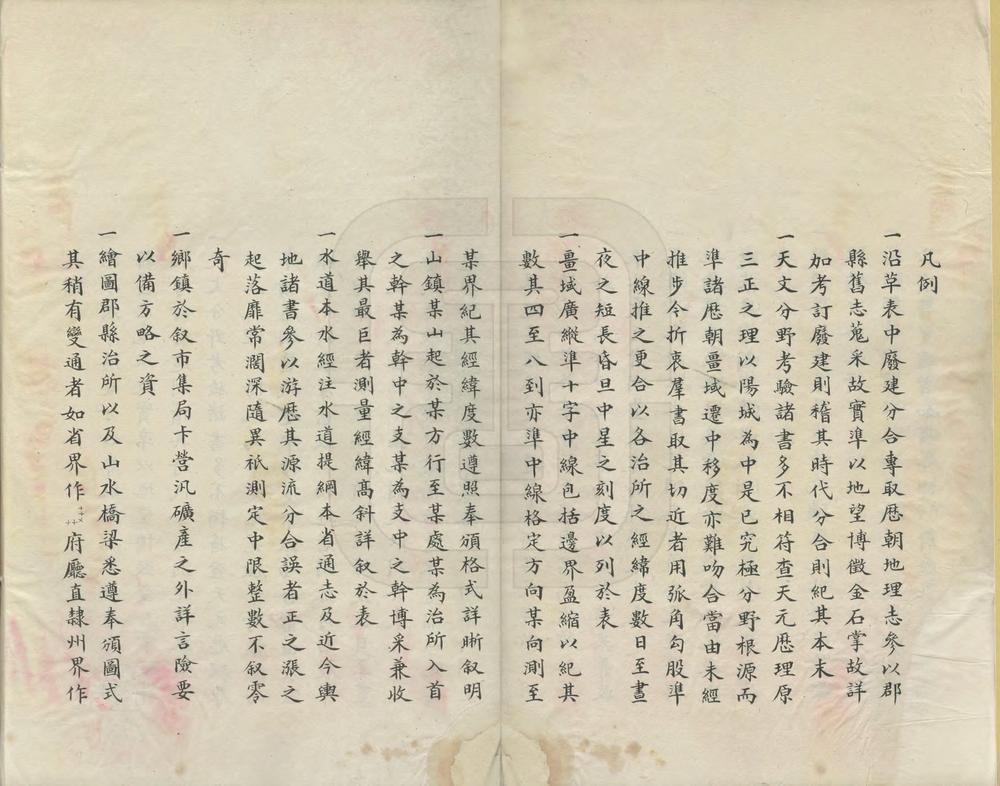 凡例
一沿革表中廢建分合專取歷朝地理志參以郡
縣舊志蒐采故實準以地望博徵金石掌故詳
加考訂廢建則稽其時代分合則紀其本末
一天文分野考驗諸書多不相符查天元歷理原
三正之理以陽城為中是已究極分野根源而
準諸歷朝畺域遷中移度亦難吻合當由未經
推步今折衷羣書取其切近者用弧角勾股準
中線推之更合以各治所之經緯度數日至晝
夜之短長昏旦中星之刻度以列於表
一畺域廣縱準十字中線包括邊界盈縮以紀其
數其四至八到亦準中線格定方向某向測至
某界紀其經緯度數遵照奉頒格式詳晰叙明
一山鎮某山起於某方行至某處某為治所入首
之幹某為幹中之支某為支中之幹博采兼收
舉其最巨者測量經緯高斜詳叙於表
一水道本水經注水道提綱本省通志及近今輿
地諸書參以游歷其源流分合誤者正之漲之
起落靡常濶深隨異祇測定中限整數不叙零
奇
一鄉鎮於叙市集局卡營汛礦產之外詳言險要
以備方略之資
一繪圖郡縣治所以及山水橋梁悉遵奉頒圖式
其稍有變通者如省界作府廳直隸州界作